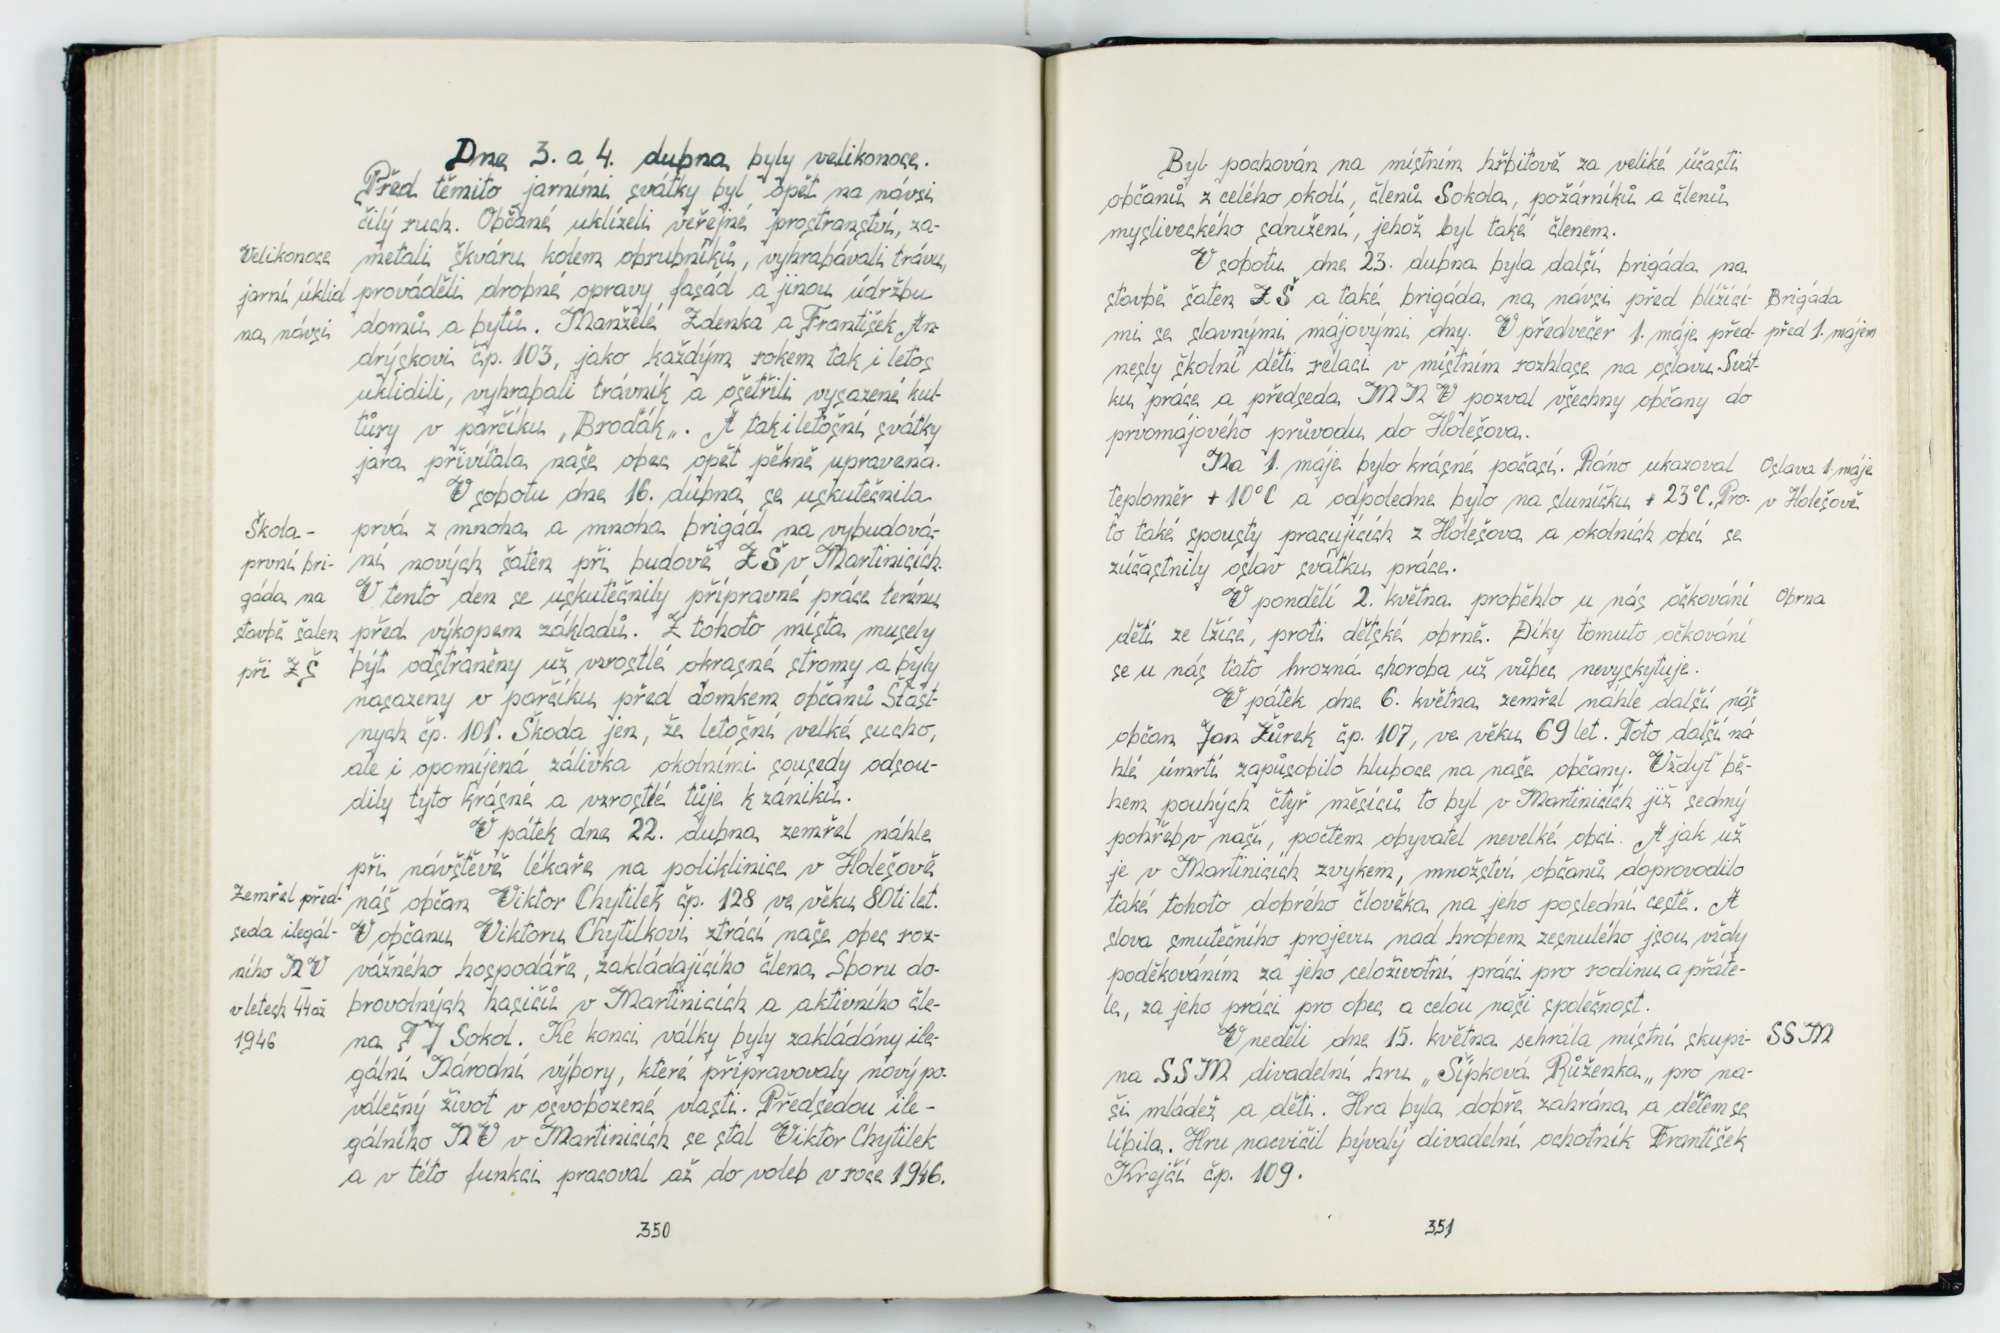 Dne 3. a 4. dubna byly velikonoce.
Před těmito jarními svátky byl opět na návsi
čilý ruch. Občané uklízeli veřejné prostranství, za-
metali škváru kolem obrubníků, vyhrabávali trávu,
prováděli drobné opravy fasád a jinou údržbu
domů a bytů. Manželé Zdenka a František An-
drýskovi čp. 103, jako každým rokem tak i letos
uklidili, vyhrabali trávník a ošetřili vysazené kul-
tůry v parčíku „Broďák„. A tak i letošní svátky
jara přivítala naše obec opět pěkně upravena.
Velikonoce
jarní úklid
na návsi
V sobotu dne 16. dubna se uskutečnila
prvá z mnoha a mnoha brigád na vybudová-
ní nových šaten při budově ZŠ v Martinicích.
V tento den se uskutečnily přípravné práce terénu
před výkopem základů. Z tohoto místa musely
být odstraněny už vzrostlé okrasné stromy a byly
nasazeny v parčíku před domkem občanů Šťast-
nych čp. 101. Škoda jen, že letošní velké sucho,
ale i opomíjená zálivka okolními sousedy odsou-
dily tyto krásné a vzrostlé túje k zániku.
Škola -
první bri-
gáda na
stavbě šaten
při ZŠ
V pátek dne 22. dubna zemřel náhle
při návštěvě lékaře na poliklinice v Holešově
náš občan Viktor Chytilek čp. 128 ve věku 80ti let.
V občanu Viktoru Chytilkovi ztrácí naše obec roz-
vážného hospodáře, zakládajícího člena Sboru do-
brovolných hasičů v Martinicích a aktivního čle-
na TJ Sokol. Ke konci války byly zakládány ile-
gální Národní výbory, které připravovaly nový po-
válečný život v osvobozené vlasti. Předsedou ile-
gálního NV v Martinicích se stal Viktor Chytilek
a v této funkci pracoval až do voleb v roce 1946.
Zemřel před-
seda ilegál-
ního NV
v letech 44 až
1946
350
Byl pochován na místním hřbitově za veliké účasti
občanů z celého okolí, členů Sokola, požárníků a členů
mysliveckého sdružení, jehož byl také členem.
V sobotu dne 23. dubna byla další brigáda na
stavbě šaten ZŠ a také brigáda na návsi před blížící-
mi se slavnými májovými dny. V předvečer 1. máje před-
nesly školní děti relaci v místním rozhlase na oslavu Svát-
ku práce a předseda MNV pozval všechny občany do
prvomájového průvodu do Holešova.
Brigáda
před 1. májem
Na 1. máje bylo krásné počasí. Ráno ukazoval
teploměr + 10°C a odpoledne bylo na sluníčku + 23°C. Pro-
to také spousty pracujících z Holešova a okolních obcí se
zúčastnily oslav svátku práce.
Oslava 1. máje
v Holešově
V pondělí 2. května proběhlo u nás očkování
dětí ze lžíce, proti dětské obrně. Díky tomuto očkování
se u nás tato hrozná choroba už vůbec nevyskytuje.
Obrna
V pátek dne 6. května zemřel náhle další náš
občan Jan Žůrek čp. 107, ve věku 69 let. Toto další ná
hlé úmrtí zapůsobilo hluboce na naše občany. Vždyť bě-
hem pouhých čtyř měsíců to byl v Martinicích již sedmý
pohřeb v naší, počtem obyvatel nevelké obci. A jak už
je v Martinicích zvykem, množství občanů doprovodilo
také tohoto dobrého člověka na jeho poslední cestě. A
slova smutečního projevu nad hrobem zesnulého jsou vždy
poděkováním za jeho celoživotní práci pro rodinu a přáte-
le, za jeho práci pro obec a celou naši společnost.
V neděli dne 15. května sehrála místní skupi-
na SSM divadelní hru „Šípková Růženka„ pro na-
ši mládež a děti. Hra byla dobře zahrána a dětem se
líbila. Hru nacvičil bývalý divadelní ochotník František
Krejčí čp. 109.
SSM
351